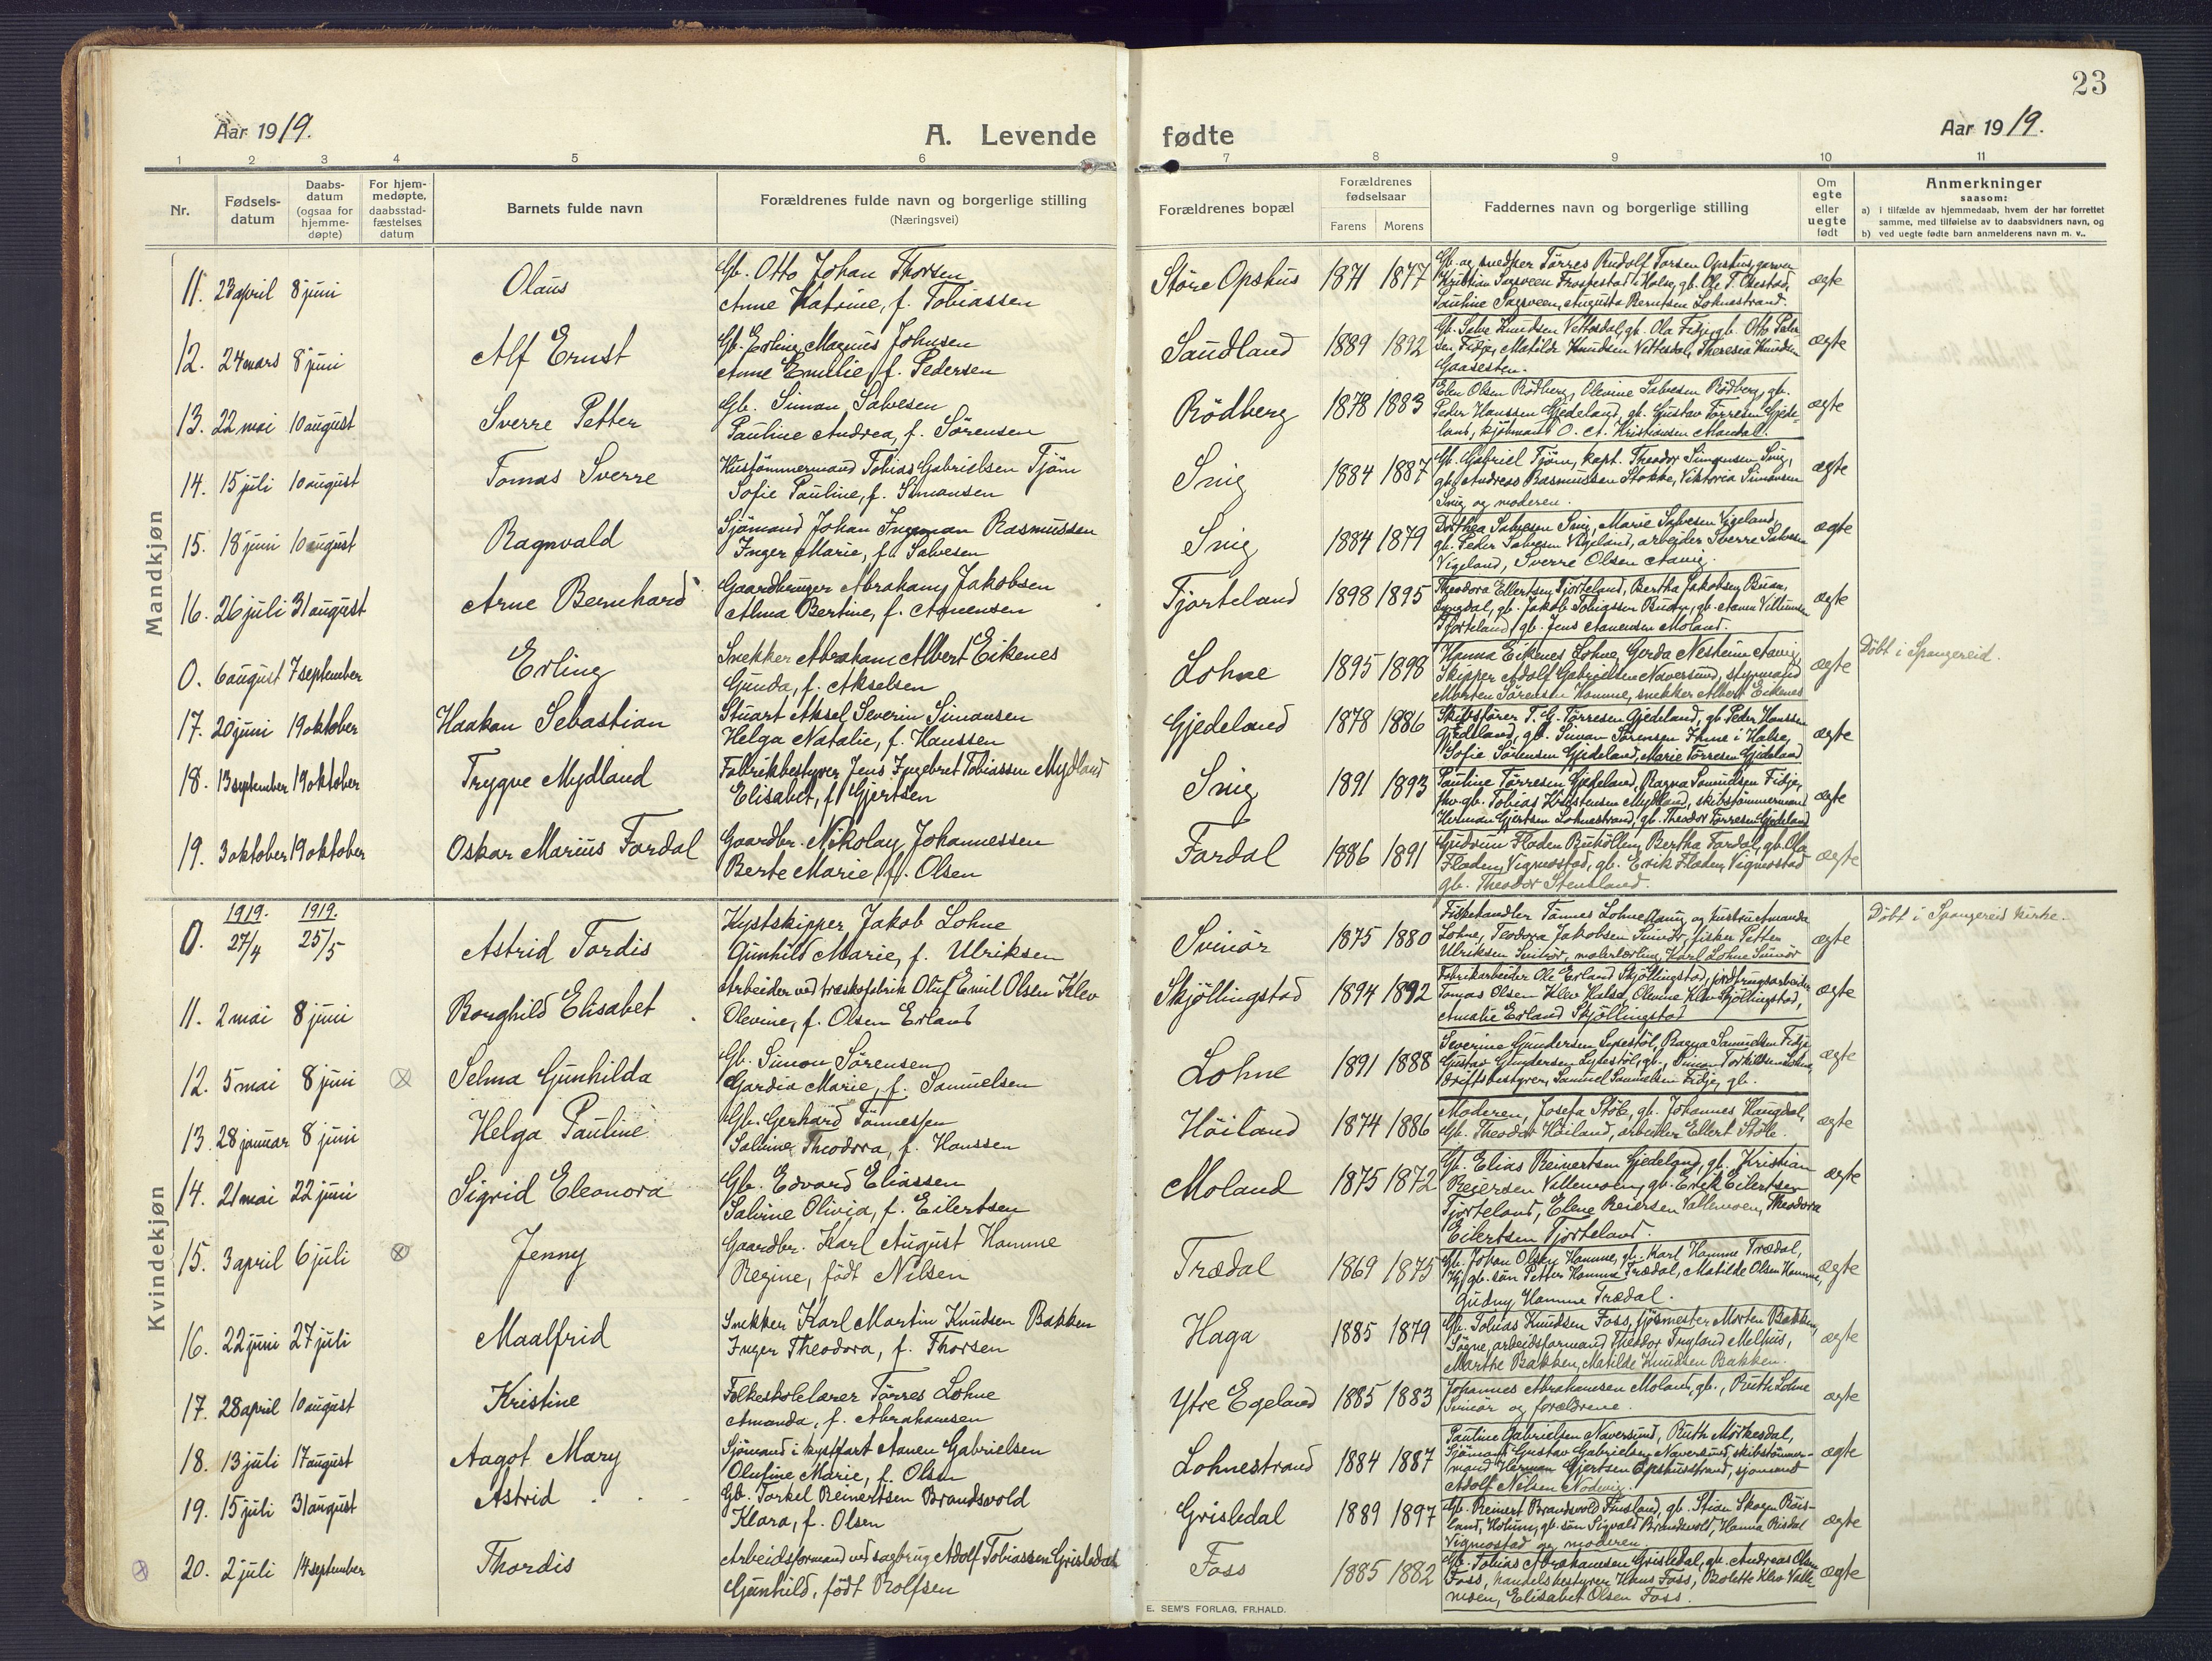 23
Aar 1919.
A. Levende fødte
Aar 1919.
1 2 3 4 5 6 7 8 9 10 11
Nr.
Fødsels-
datum
Daabs-
datum
(ogsaa for
hjemme-
døpte)
For hjem-
medøpte,
daabsstad-
fæstelses
datum
Barnets fulde navn
Forældrenes fulde navn og borgerlige stilling
(Næringsvei)
Forældrenes bopæl
Forældrenes
fødselsaar
Farens Morens
Faddernes navn og borgerlige stilling
Om
egte
eller
uegte
født
Anmerkninger
saasom:
a) i tilfælde av hjemmedaab, hvem der har forrettet
samme, med tilføielse av to daabsvidners navn, og
b) ved uegte fødte barn anmelderens navn m. v..
Mandkjøn
11. 23 april 8 juni Olaus Gb. Otto Johan Thorsen
Anne Katrine, f. Tobiassen
Store Opshus 1871 1877
Kristian Sagveen Frøstestad i Halse, gb. Ole T.
Pauline Sagveen, Augusta Berntsen Lohnestrand.
ægte
12. 24 mars 8 juni Alf Ernst Gb. Erling Magnus Johnsen
Anne Emilie, f. Pedersen
Saudland 1889 1892 Gb. Salve Knudsen Vettesdal, gb. Ola Fidje, gb. Otto Peder
sen Fidje, Matilde Knudsen Vettesdal, Theresia Knudsen
Gaasesten.
ægte
13. 22 mai 10 august Sverre Petter Gb. Simon Salvesen
Pauline Andrea, f. Sørensen
Rödberg 1878 1883 Elen Olsen Rödberg, Olevine Salvesen Rödberg, gb.
Peder Hanssen Gjedeland, gb. Gustav Tørresen Gjede-
land, kjøbmand O. A. Kristiansen Mandal.
ægte
14. 15 juli 10 august Tomas Sverre Hustømmermand Tobias Gabrielsen Tjøm
Sofie Pauline, f. Simonsen
Snig 1884 1887 Gb. Gabriel Tjøm, kapt. Theodor Simonsen Snig,
gb. Andreas Rasmussen Stokke, Viktoria Simonsen
Snig og moderen.
ægte
15. 18 juni 10 august Ragnvald Sjømand Johan Ingeman Rasmussen
Inger Marie, f. Salvesen
Snig 1884 1879 Dorthea Salvesen Snig, Marie Salvesen Vigeland,
gb. Peder Salvesen Vigeland, arbeider Sverre Salvesen
Vigeland, Sverre Olsen Aavig.
ægte
16. 26 juli 31 august Arne Bernhard Gaardbruger Abraham Jakobsen
Alma Bertine, f. Aanensen
Tjorteland 1898 1895 Theodora Ellertsen Tjorteland, Bertha Jakobsen Buan,
Lyngdal, gb. Jakob Tobiassen Buan, gb. Aanen Villumsen
Tjorteland, gb. Jens Aanensen Moland.
ægte
0. 6 august 7 september Erling Snekker Abraham Albert Eikenes
Gunda, f. Akselsen
Lohne 1895 1898 Hanna Eikenes Lohne, Gerda Nesheim Aavig,
Skipper Adolf Gabrielsen Naversund, styrmand
Morten Sørensen Homme, snekker Albert Eikenes
ægte Döbt i Spangereid.
17. 20 juni 19 oktober Haakon Sebastian Stuart Aksel Severin Simonsen
Helga Natalie, f. Hanssen
Gjedeland 1878 1886 Skibsfører T. G. Tørresen Gjedeland, gb. Peder Hanssen
Gjedeland, gb. Simon Sørensen Ihme i Halse,
Sofie Sørensen Gjedeland, Marie Tørresen Gjedeland
ægte
18. 13 september 19 oktober Trygve Mydland Fabrikbestyrer Jens Ingebret Tobiassen Mydland
Elisabet, f. Gjertsen
Snig 1891 1893 Pauline Tørresen Gjedeland, Ragna Samuelsen Fidje,
fhv. gb. Tobias Kristensen Mydland, skibstømmermand
Herman Gjertsen Lohnestrand, gb. Theodor Tørresen Gjedeland
ægte
19. 3 oktober 19 oktober Oskar Marius Fardal Gaardbr. Nikolay Johannessen
Berte Marie, f. Olsen
Fardal 1886 1891 Gudrun Fladen Buhøllen, Bertha Fardal, gb. Ola
Fladen, Vigmostad, gb. Erik Fladen, Vigmostad
gb. Theodor Stensland.
ægte
Kvindekjøn
1919. 1919.
0. 27/4 25/5 Astrid Tordis Kystskipper Jakob Lohne
Gunhild Marie, f. Ulriksen
Svinör 1875 1880 Fiskehandler Tønnes Lohne Aavig og hustru Amanda
Lohne, Teodora Jakobsen Svinör, fisker Petter
Ulriksen Svinör, malerlærling Karl Lohne Svinör
ægte Döbt i Spangereid kirke.
11. 2 mai 8 juni Borghild Elisabet Arbeider ved træskofabrik Oluf Emil Olsen Klev
Olevine, f. Olsen Erland
Skjöllingstad 1894 1892 Fabrikarbeider Ole Erland Skjöllingstad, jordbrugsarbeider
Tomas Olsen Klev Halse, Olevine Klev Skjöllingstad,
Amalie Erland Skjöllingstad
ægte
12. 5 mai 8 juni Selma Gunhilda Gb. Simon Sørensen
Gardia Marie, f. Samuelsen
Lohne 1891 1888 Severine Gundersen Lysestöl, Ragna Samuelsen Fidje
Gustav Gundersen Lysestöl, gb., Simon Torkildsen Lohne,
driftsbestyrer, Samuel Samuelsen Fidje, gb.
ægte
13. 28 januar 8 juni Helga Pauline Gb. Gerhard Tønnessen
Salvine Theodora, f. Hanssen
Höiland 1874 1886 Moderen, Josefa Stöle, gb. Johannes Haugdal,
Gb. Theodor Höiland, arbeider Ellert Stöle.
ægte
14. 21 mai 22 juni Sigrid Eleonora Gb. Edvard Eliassen
Salvine Olivia, f. Eilertsen
Moland 1875 1872 Gb. Elias Reinertsen Gjedeland, gb. Kristian
Reiersen Vallemoen, gb. Erik Eilertsen
Tjorteland, Elene Reiersen Vallemoen, Theodora
Eilertsen Tjorteland.
ægte
15. 3 april 6 juli Jenny Gaardbr. Karl August Homme
Regine, født Nilsen
Trædal 1869 1875 Gb. Johan Olsen Homme, gb. Karl Homme Trædal,
gb. søn Petter Homme Trædal, Matilde Olsen Homme,
Gudny Homme Trædal.
ægte
16. 22 juni 27 juli Maalfrid Snekker Karl Martin Knudsen Bakken
Inger Theodora, f. Thorsen
Haga 1885 1879 Gb. Tobias Knudsen Foss, gjösmester Morten Bakken,
Søgne, arbeidsformand Theodor Trygland Melhus,
Marthe Bakken, Matilde Knudsen Bakken.
ægte
17. 28 april 10 august Kristine Folkeskolelærer Tørres Lohne
Amanda, f. Abrahamsen
Ytre Egeland 1885 1883 Johannes Abrahamsen Moland, gb., Ruth Lohne
Svinör og forældrene.
ægte
18. 13 juli 17 august Aagot Mary Sjømand i kystfart Aanen Gabrielsen
Olufine Marie, f. Olsen
Lohnestrand 1884 1887 Pauline Gabrielsen Naversund, Ruth Mørkesdal,
Sjømand Gustav Gabrielsen Naversund, skibstømmer-
mand Herman Gjertsen Opshusstrand, sjømand
Adolf Nilsen Nodevig.
ægte
19. 15 juli 31 august Astrid Gb. Torkel Reinertsen Brandsvold
Klara, f. Olsen
Grisledal 1889 1897 Gb. Reinert Brandsvold Finsland, gb. Stian Skogen Röis-
land, Holum, gb. søn Sigvald Brandsvold, Hanna Risdal
Vigmostad og moderen.
ægte
20. 2 juli 14 september Thordis Arbeidsformand ved sagbrug Adolf Tobiassen Grisledal
Gunhild, født Rolfsen
Foss 1885 1882 Gb. Tobias Abrahamsen Grisledal, gb. Andreas Olsen
Foss, handelsbestyrer Hans Foss, Bolette Klev Valle-
moen, Elisabet Olsen Foss.
ægte
E. SEM'S FORLAG, FR.HALD.